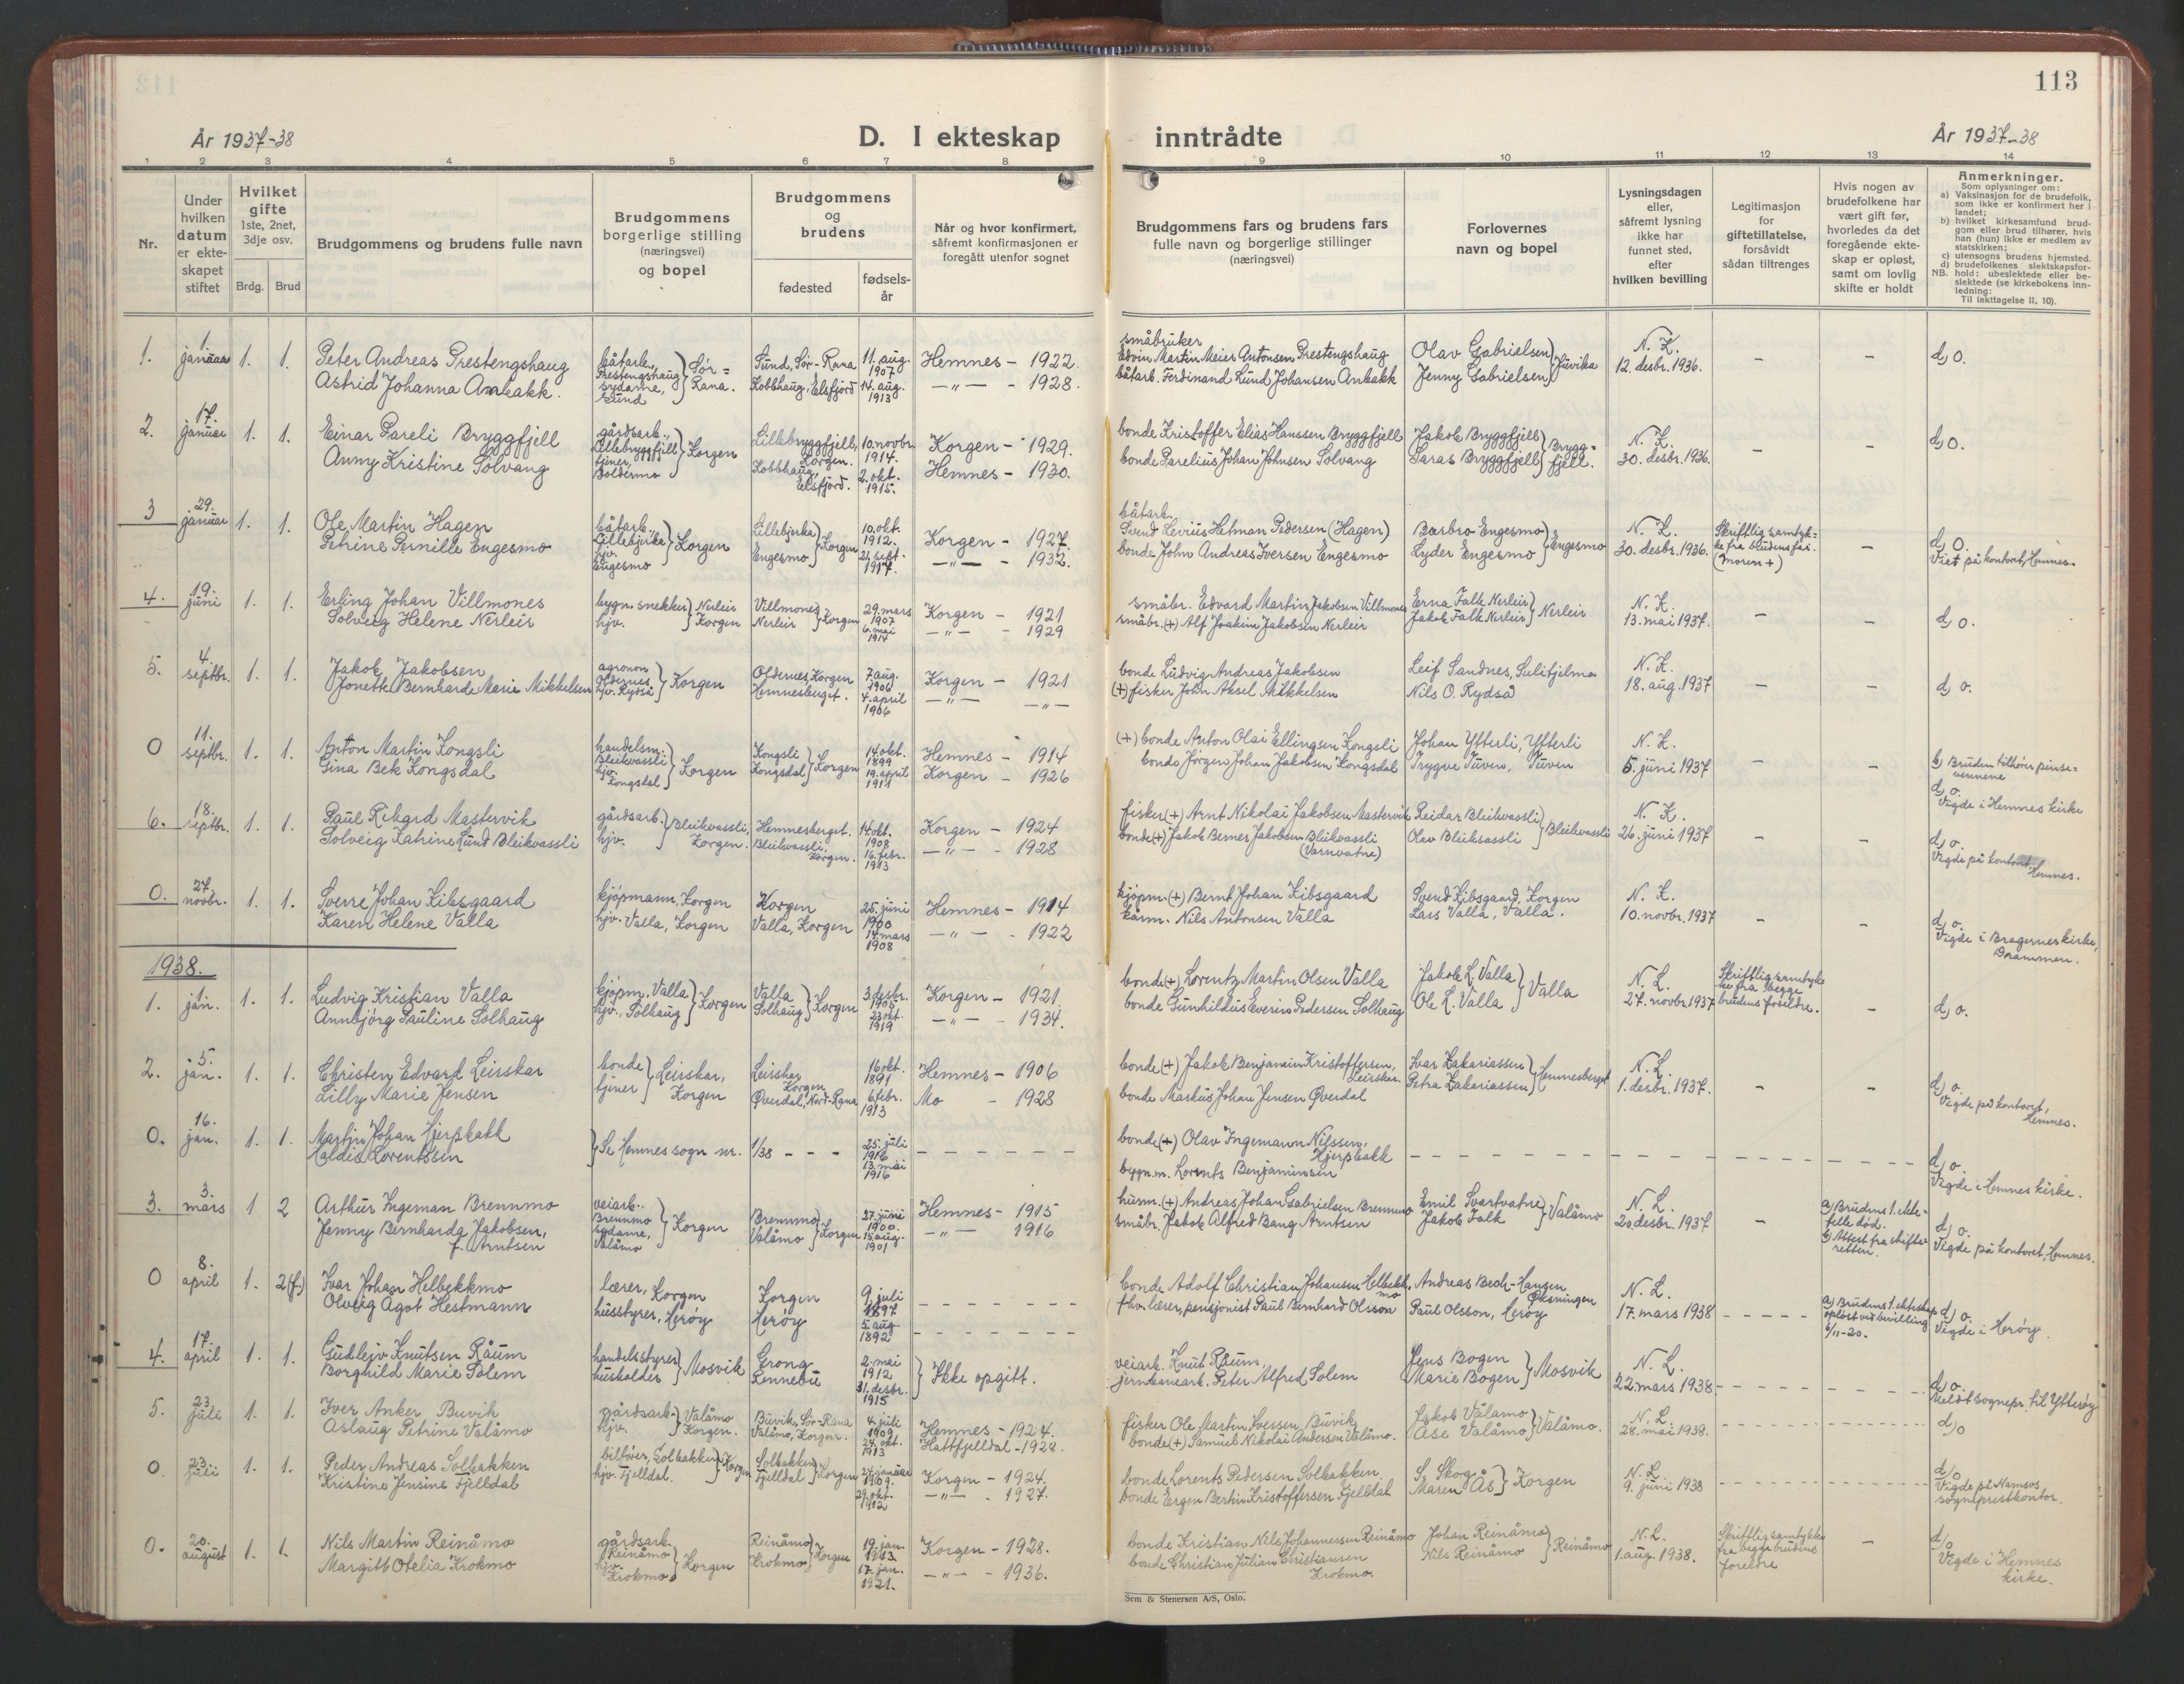 113
År 1937-38
D. I ekteskap inntrådte
År 1937-38
1 2 3 4 5 6 7 8 9 10 11 12 13 14
Nr.
Under hvilken datum er ekteskapet stiftet
Hvilket gifte 1ste, 2net, 3dje osv.
Brdg. Brud
Brudgommens og brudens fulle navn
Brudgommens borgerlige stilling (næringsvei) og bopel
Brudgommens og brudens
fødested
fødselsår
Når og hvor konfirmert, såfremt konfirmasjonen er foregått utenfor sognet
Brudgommens fars og brudens fars fulle navn og borgerlige stillinger (næringsvei)
Forlovernes navn og bopel
Lysningsdagen eller, såfremt lysning ikke har funnet sted, efter hvilken bevilling
Legitimasjon for giftetillatelse, forsåvidt sådan tiltrenges
Hvis nogen av brudefolkene har vært gift før, hvorledes da det foregående ekteskap er opløst, samt om lovlig skifte er holdt
Anmerkninger.
Som oplysninger om:
a) Vaksinasjon for de brudefolk, som ikke er konfirmert her i landet;
b) hvilket kirkesamfund brudgom eller brud tilhører, hvis han (hun) ikke er medlem av statskirken;
c) utensogns brudens hjemsted.
d) brudefolkenes slektskapsforhold: ubeslektede eller beslektede (se kirkebokens innledning:
NB.
Til iakttagelse II, 10).
1. 1. januar 1. 1. Peter Andreas Prestengshaug båtarb., Prestengshaug Sør-Rana. Sund, Sør-Rana 11. aug. 1907 Hemnes - 1922. småbruker Edvin Martin Meier Antonsen Prestengshaug Olav Gabrielsen Juvika N. K. 12. desbr. 1936. - - d) o.
Astrid Johanna Anbakk. sydame, Sund Kobbhaug, Elsfjord 14. aug. 1913 —„— - 1928. båtarb. Ferdinand Lund Johansen Anbakk Jenny Gabrielsen
2. 17. januar 1. 1. Einar Pareli Bryggfjell gårdsarb., Lillebryggfjell Korgen Lillebryggfjell, Korgen. 10. novbr. 1914. Korgen - 1929. bonde Kristoffer Elias Hanssen Bryggfjell Jakob Bryggfjell Bryggfjell. N. K. 30. desbr. 1936. - - d) o.
Anny Kristine Solvang tjener, Boldermo Kobbhaug, Elsfjord. 2. okt. 1915. Hemnes - 1930. bonde Parelius Johan Johnsen Solvang Saras Bryggfjell
3 29. januar 1. 1. Ole Martin Hagen båtarb., Lillebjerka Korgen Lillebjerka Korgen 10. okt. 1912. Korgen - 1927. båtarb. Svend Levius Hetman Pedersen (Hagen) Barbro Engesmo Engesmo N. K. 30. desbr. 1936. Skriftlig samtykke fra brudens far. (Moren +) - d) o. Viet på kontoret, Hemnes.
Petrine Pernille Engesmo hjv. Engesmo Engesmo 21. sept. 1917. —„— - 1932. bonde John Andreas Iversen Engesmo Lyder Engesmo
4. 19. juni 1. 1. Erling Johan Villmones bygn. snekker Nerleir Korgen Villmones Korgen 29. mars 1907 Korgen - 1921 småbr. Edvard Martin Jakobsen Villmones Erna Falk Nerleir Nerleir N. K. 13. mai 1937. - - d) o.
Solveig Helene Nerleir hjv. Nerleir 6. mai 1914 —„— - 1929 småbr. (+) Alf Joakim Jakobsen Nerleir Jakob Falk Nerleir
5. 4. septbr. 1. 1. Jakob Jakobsen agronom Oldernes, Korgen Oldernes, Korgen 7. aug. 1906 Korgen - 1921 bonde Ludvig Andreas Jakobsen Leif Sandnes, Sulitjelma N. K. 18. aug. 1937 - - d) o.
Jonette Bernharde Marie Mikkelsen hjv. Rydså Hemnesberget. 4. april 1906 —„— —„— (+) fisker John Aksel Mikkelsen Nils O. Rydså
0 11. septbr. 1. 1. Anton Martin Kongsli handelsm. Bleikvassli Korgen Kongsli Korgen 14. okt. 1899 Hemnes - 1914 (+) bonde Anton Olai Ellingsen Kongsli Johan Ytterli, Ytterli N. K. 5. juni 1937 - - b) Bruden tilhører pinsevennene d) o. Vigde i Hemnes kirke
Gina Bek Kongsdal hjv. Kongsdal Kongsdal 19. april 1911 Korgen - 1926 bonde Jørgen Johan Jakobsen Kongsdal Trygve Tuven, Tuven
6. 18. septbr. 1. 1. Paul Rikard Mastervik gårdsarb. Bleikvassli, Korgen. Hemnesberget. 14. okt. 1908 Korgen - 1924 fisker (+) Arnt Nikolai Jakobsen Mastervik Reidar Bleikvassli Bleikvassli N. K. 26. juni 1937 - - d) o. Vigde på kontoret, Hemnes.
Solveig Katrine Lund Bleikvassli hjv. Bleikvassli, Korgen. 16. febr. 1913 —„— - 1928 bonde (+) Jakob Berner Jakobsen Bleikvassli (Varnvatne) Olav Bleikvassli
0. 27. novbr. 1. 1. Sverre Johan Kibsgaard kjøpmann, Korgen Korgen 25. juni 1900 Hemnes - 1914 kjøpm. (+) Bernt Johan Kibsgaard Svend Kibsgaard, Korgen N. K. 10. novbr. 1937 - - d) o. Vigde i Bragernes kirke, Drammen.
Karen Helene Valla hjv. Valla, Korgen Valla, Korgen 14. mars 1908 —„— - 1922 Nils Antonsen Valla Lars Valla, Valla.
1938.
1. 1. jan. 1. 1. Ludvig Kristian Valla kjøpm., Valla Korgen Valla Korgen 1905 Korgen - 1921 bonde (+) Lorentz Martin Olsen Valla Jakob L. Valla Valla N. L. 27. novbr. 1937 Skriftlig samtykke fra begge brudens foreldre. - d) o.
Annbjørg Pauline Solhaug hjv., Solhaug Solhaug 23. okt. 1919 —„— - 1934. bonde Gunhildus Everin Pedersen Solhaug Ole L. Valla
2. 5. jan. 1. 1. Christen Edvard Leirskar bonde Leirskar, Korgen Leirskar Korgen 16. okt. 1891 Hemnes - 1906 bonde (+) Jakob Benjamin Kristoffersen, Leirskar. Ivar Zakariassen Hemnesberget N. L. 1. desbr. 1937. - - d) o. Vigde på kontoret, Hemnes.
Lilly Marie Jensen tjener Øverdal, Nord-Rana 6. febr. 1913 Mo - 1928 bonde Markus Johan Jensen Øverdal Petra Zakariassen
0. 16. jan. 1. 1. Martin Johan Hjerpbakk Se Hemnes sogn nr. 1/38 - - - 25. juli 1916 - - - bonde (+) Olav Ingemann Nilssen, Hjerpbakk - - - d) o. Vigde i Hemnes kirke.
Haldis Lorentssen 13. mai 1916 bygn.m. Lorents Benjaminsen
3. 3. mars 1 2 Arthur Ingeman Brennmo veiarb., Brennmo Korgen Brennmo Korgen 27. juni 1900. Hemnes - 1915 husm. (+) Andreas Johan Gabrielsen Brennmo Emil Svartvatne Valåmo N. L. 20. desbr. 1937 - a) Brudens 1. ektefelle død. b) Attest fra skifteretten. d) o. Vigde på kontoret, Hemnes.
Jenny Bernharda Jakobsen, f. Arntsen sydame, Valåmo Valåmo 15. aug. 1901 —„— 1916 småbr. Jakob Alfred Bang Arntsen Jakob Falk
0 8. april 1. 2(f.) Ivar Johan Helbekkmo lærer, Korgen Korgen 9. juli 1897 - - - bonde Adolf Christian Johansen Helbekkmo Andreas Bech-Hansen Øksningen N. L. 17. mars 1938 - - - a) Brudens 1. ekteskap opløst ved bevilling 6/11-20. d) o. Vigde i Herøy.
Olveig Agot Hestmann husstyrer, Herøy Herøy 5. aug. 1892 - - - fhv. lærer, pensjonist Paul Bernhard Olsson Paul Olsson, Herøy
4. 17. april 1. 1. Gudlejv Knutsen Raum handelsstyrer Mosvik Grong 2. mai 1912 Ikke opgitt. veiarb. Knut Raum, Jens Bogen Mosvik N. L. 22. mars 1938 - - - d) o. Meldt sognepr. til Ytterøy
Borghild Marie Solem husholder Rennebu 31. desbr. 1915 Peter Alfred Solem Marie Bogen
5. 23. juli 1. 1. Iver Anker Buvik gårdsarb. Valåmo Korgen. Buvik, Sør-Rana 4. juli 1909 Hemnes - 1924. fisker Ole Martin Iversen Buvik Jakob Valåmo Valåmo. N. L. 28. mai 1938. - - - d) o
Aslaug Petrine Valåmo hjv. Valåmo, Korgen. 24. okt. 1913 Hattfjelldal - 1928. bonde (+) Samuel Nikolai Andersen Valåmo. Åse Valåmo
0. 23. juli 1. 1. Peder Andreas Solbakken bilfører, Solbakken Korgen Solbakken Korgen 27. januar 1909. Korgen - 1924. bonde Lorents Pedersen Solbakken S. Skog Korgen N. L. 9. juni 1938 - - - d) o Vigde på Namsos sogneprestkontor.
Kristine Jensine Fjelldal hjv. Fjelldal. Fjelldal 29. okt. 1912 —„— - 1927. bonde Ergen Bertin Kristoffersen Fjelldal Maren Ås
0. 20. august 1. 1. Nils Martin Reinåmo gårdsarb. Reinåmo Korgen Reinåmo Korgen 19. jan. 1913. Korgen - 1928. bonde Kristian Nils Johannessen Reinåmo Johan Reinåmo Reinåmo N. L. 1. aug. 1938. Skriftlig samtykke fra begge brudens foreldre - d) o Vigde i Hemnes kirke.
Margitt Otelia Krokmo hjv. Krokmo Krokmo 17. jan. 1921. —„— - 1936. bonde Christian Julian Christiansen Krokmo. Nils Reinåmo
Sem & Stenersen A/S, Oslo.